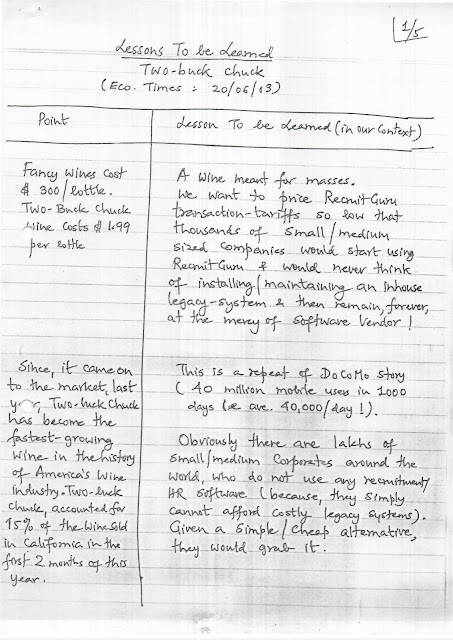 1/5
Lessons To be Learned
Two-buck chuck
(Eco. Times : 20/06/03)
Point
Lesson To be Learned (in our Context)
Fancy Wines Cost
$ 300/bottle.
Two-Buck Chuck
wine Costs $ 1.99
per bottle
A wine meant for masses.
We want to price RecruitGuru
transaction-tariffs so low that
thousands of small/medium
sized companies would start using
RecruitGuru & would never think
of installing/maintaining an inhouse
legacy-system & then remain, forever,
at the mercy of Software Vendor!
Since, it came on
to the market, last
year, Two-buck Chuck
has become the
fastest-growing
wine in the history
of America's Wine
industry. Two-buck
chuck, accounted for
15% of the Wine Sold
in California in the
first 2 months of this
year.
This is a repeat of DoCoMo story
( 40 million mobile users in 1000
days (ie ave. 40,000/day!).
Obviously there are lakhs of
small/medium Corporates around the
world, who do not use any recruitment/
HR software (because, they simply
cannot afford costly legacy systems).
Given a simple/cheap alternative,
they would grab it.